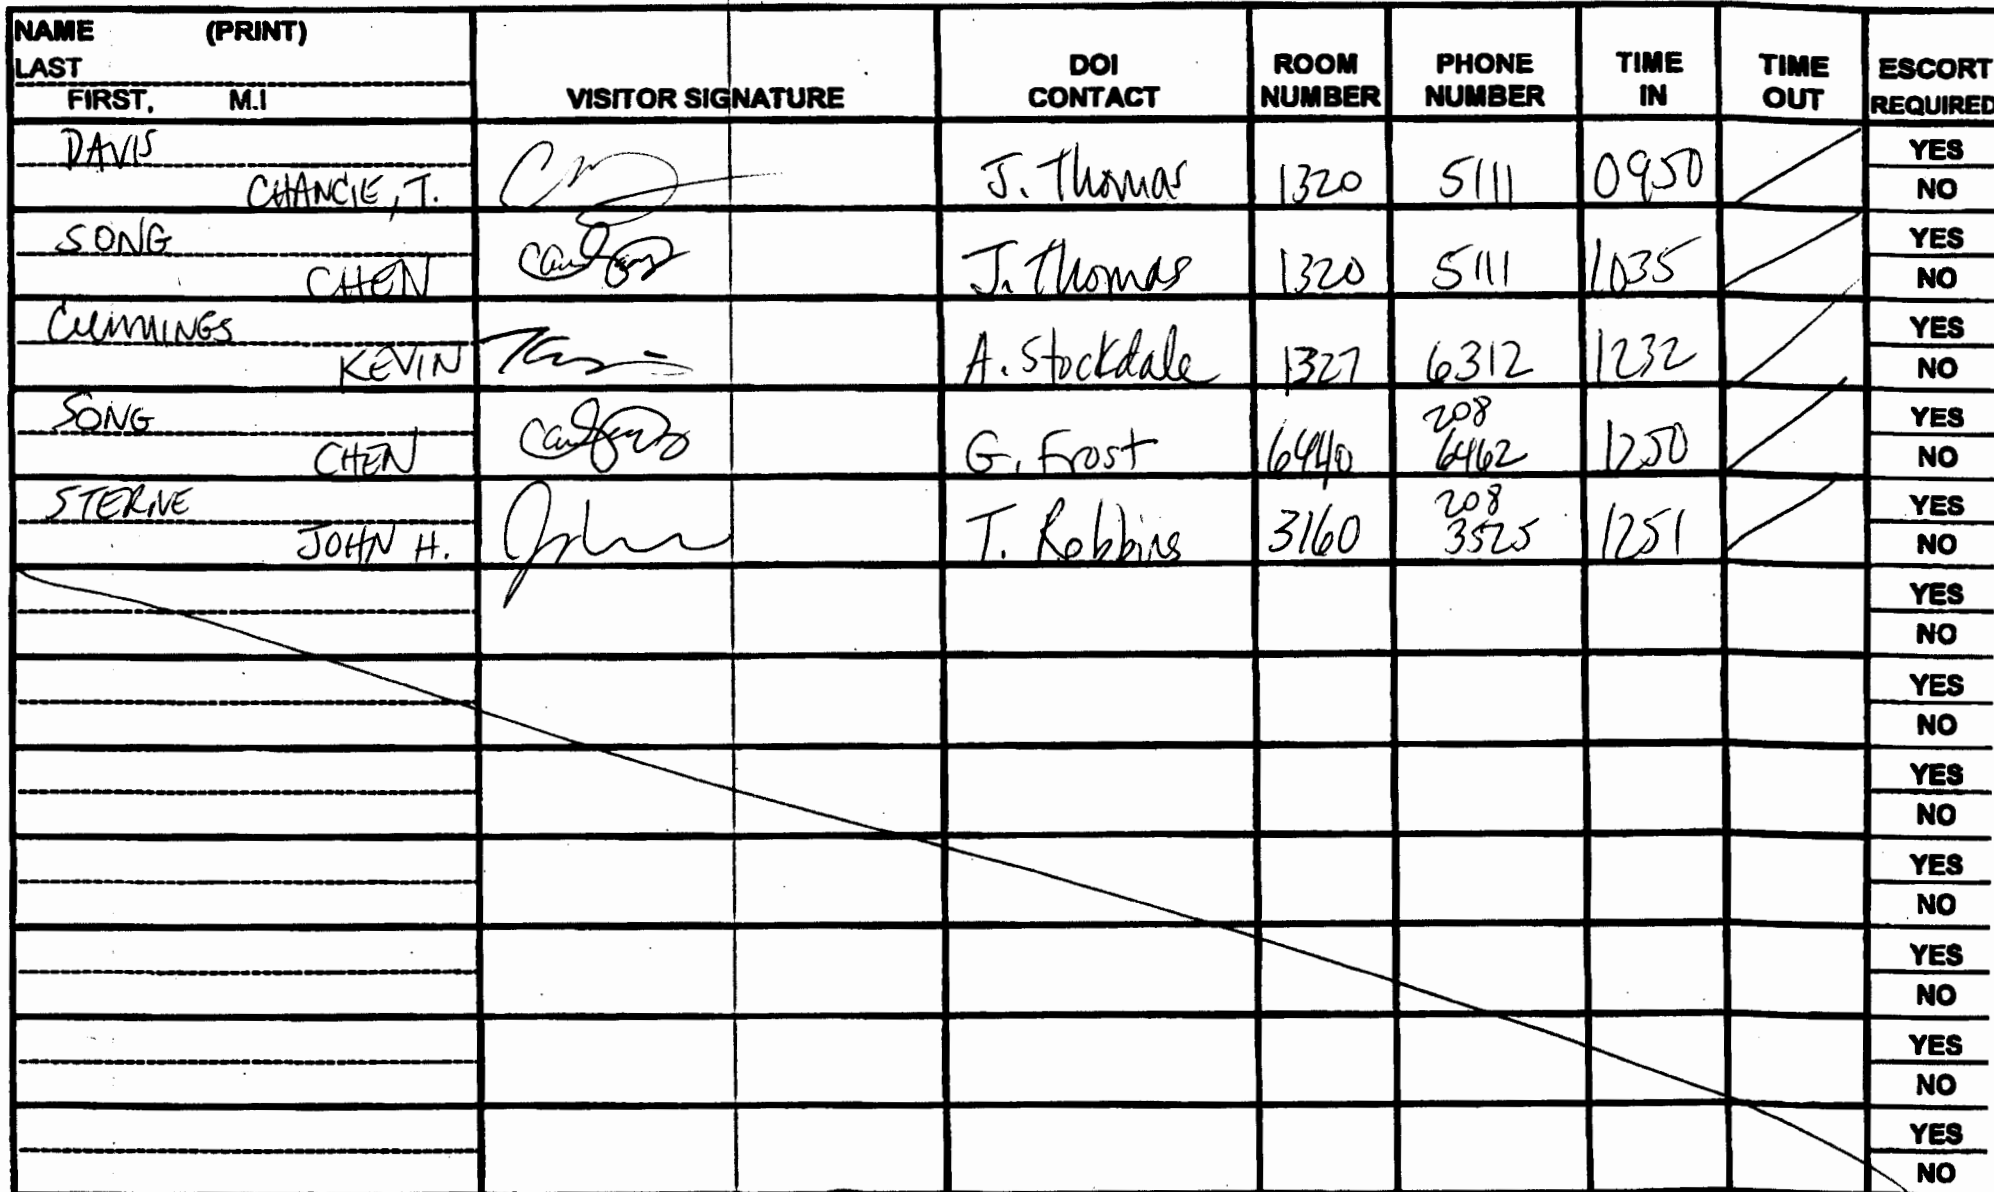 NAME (PRINT)
LAST
FIRST, M.I
VISITOR SIGNATURE
DOI CONTACT
ROOM NUMBER
PHONE NUMBER
TIME IN
TIME OUT
ESCORT REQUIRED
DAVIS
CHANCIE, T.
J. Thomas 1320 5111 0950
YES
NO
SONG
CHEN
J. Thomas 1320 5111 1035
YES
NO
CUMMINGS
KEVIN
A. Stockdale 1327 6312 1232
YES
NO
SONG
CHEN
G. Frost 6440 208 6462 1250
YES
NO
STERNE
JOHN H.
John
T. Robbins 3160 208 3525 1251
YES
NO
YES
NO
YES
NO
YES
NO
YES
NO
YES
NO
YES
NO
YES
NO